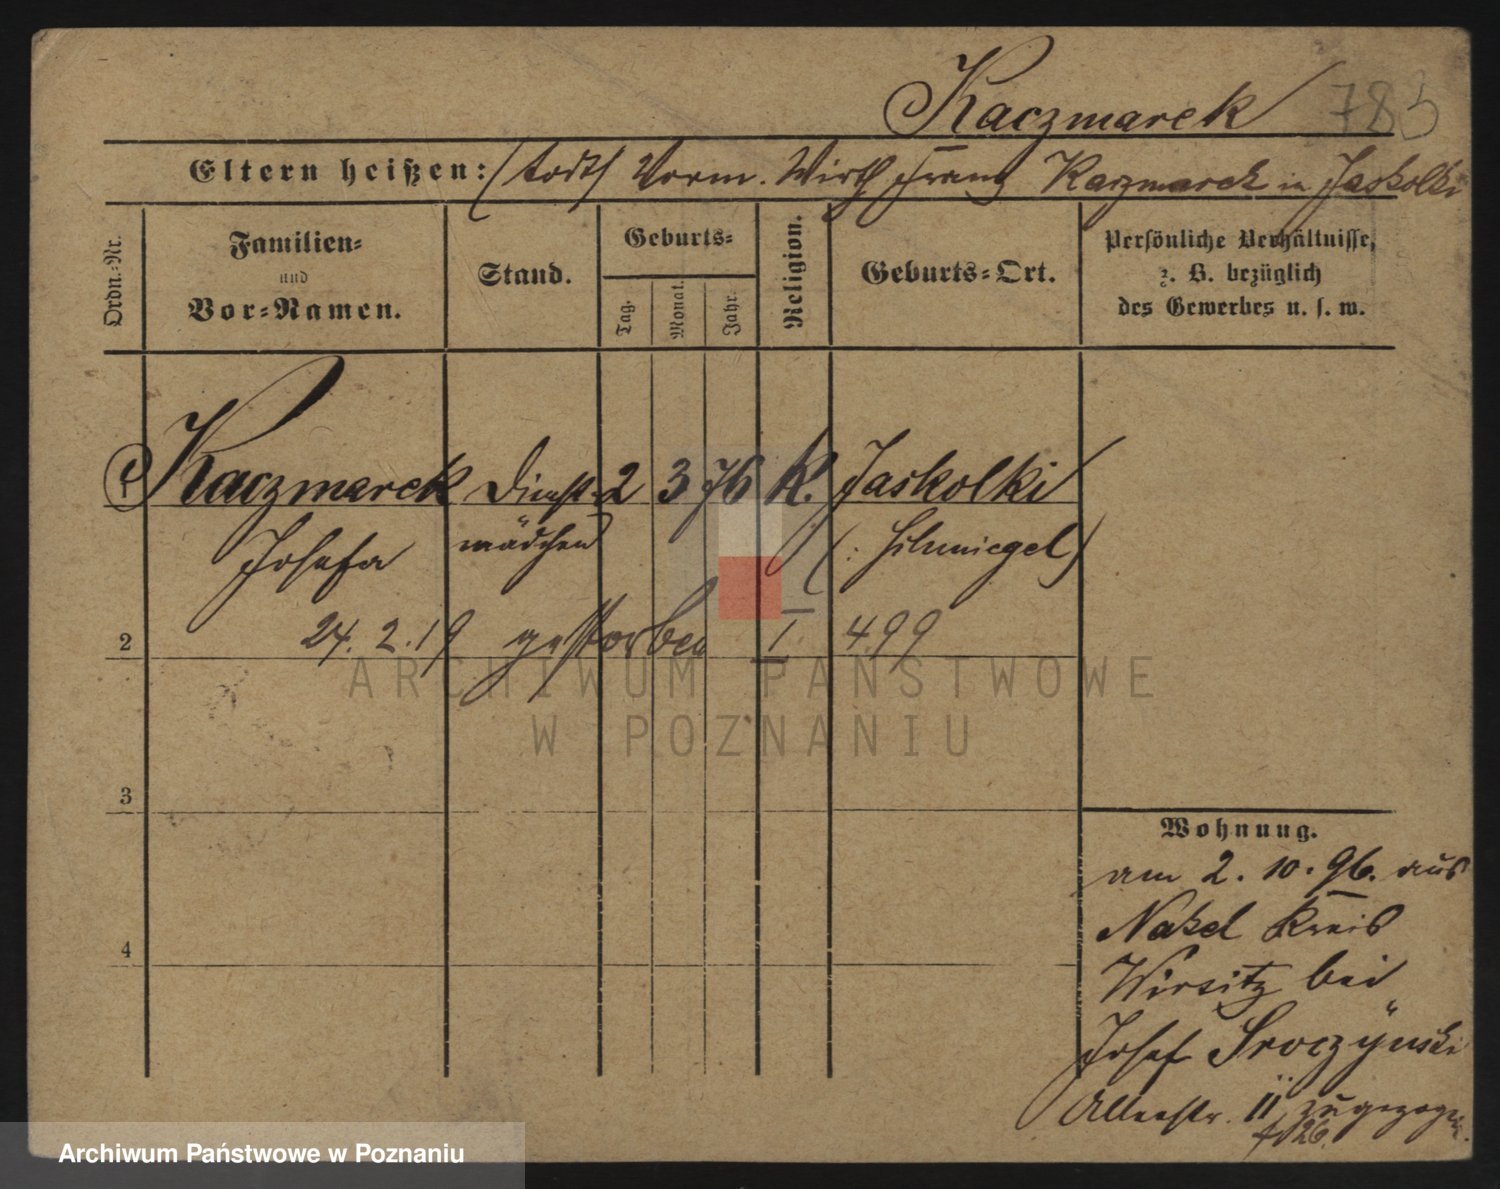 Kaczmarek 783
Eltern heißen: (todt) Vorm. Wirth Franz Kaczmarek in Jaskolki
Ordn.-Nr.
Familien-
und
Vor-Namen.
Stand.
Geburts-
Tag.
Monat.
Jahr.
Religion.
Geburts-Ort.
Persönliche Verhältnisse,
z. B. bezüglich
des Gewerbes u. s. w.
1 Kaczmarek Dienst- 2 3 76 K. Jaskolki
Josefa mädchen (: Schmiegel)
2 24.2.19 gestorben I. 499
3
4
Wohnung.
am 2. 10. 96. aus
Nakel Kreis
Wirsitz bei
Josef Sroczÿnski
Allerstr. 11 zugezogen.
ARCHIWUM PAŃSTWOWE
W POZNANIU
Archiwum Państwowe w Poznaniu